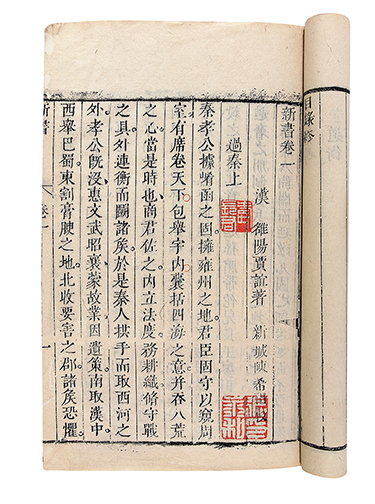 新書卷一
漢 雒陽賈誼著 新城陳希
過秦上
秦孝公據崤函之固擁雍州之地君臣固守以窺周
室有席卷天下包舉宇內囊括四海之意并吞八荒
之心當是時也商君佐之內立法度務耕織脩守戰
之具外連衡而鬭諸矦於是秦人拱手而取西河之
外孝公既沒惠文武昭襄蒙故業因遺策南取漢中
西舉巴蜀東割膏腴之地北收要害之郡諸矦恐懼
新書 卷一 一